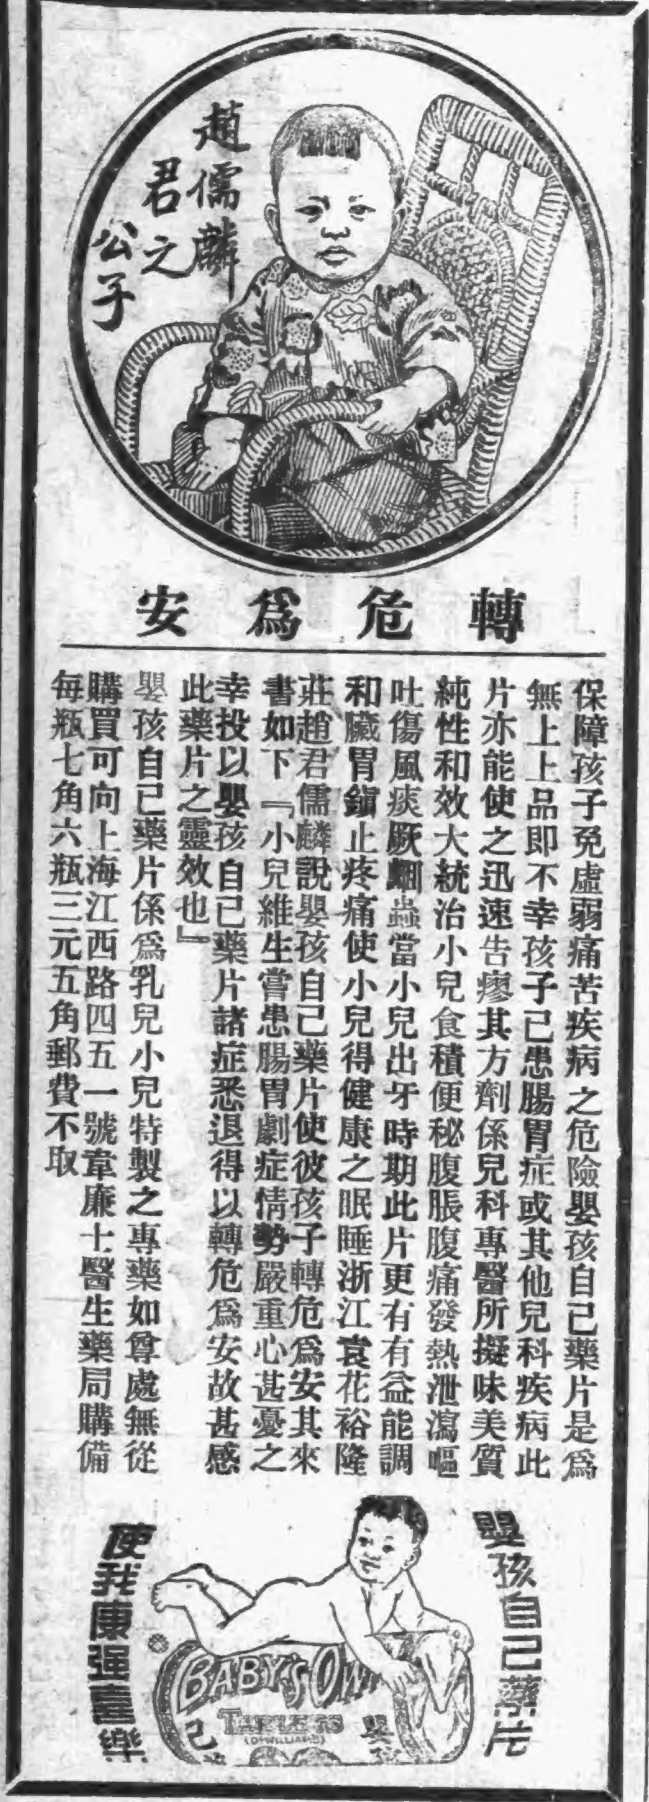 趙儒麟
君之
公子
轉危爲安
保障孩子免虛弱痛苦疾病之危險嬰孩自己藥片是爲
無上上品即不幸孩子已患腸胃症或其他兒科疾病此
片亦能使之迅速告瘳其方劑係兒科專醫所擬味美質
純性和效大統治小兒食積便秘腹脹腹痛發熱泄瀉嘔
吐傷風痰厥蛔蟲當小兒出牙時期此片更有有益能調
和臟胃鎮止疼痛使小兒得健康之眠睡浙江袁花裕隆
莊趙君儒麟說嬰孩自己藥片使彼孩子轉危爲安其來
書如下『小兒維生嘗患腸胃劇症情勢嚴重心甚憂之
幸投以嬰孩自己藥片諸症悉退得以轉危爲安故甚感
此藥片之靈效也』
嬰孩自己藥片係爲乳兒小兒特製之專藥如尊處無從
購買可向上海江西路四五一號韋廉士醫生藥局購備
每瓶七角六瓶三元五角郵費不取
嬰孩自己藥片
使我康强喜樂
BABY'S OWN
TABLETS
(Dr WILLIAMS)
嬰孩
己